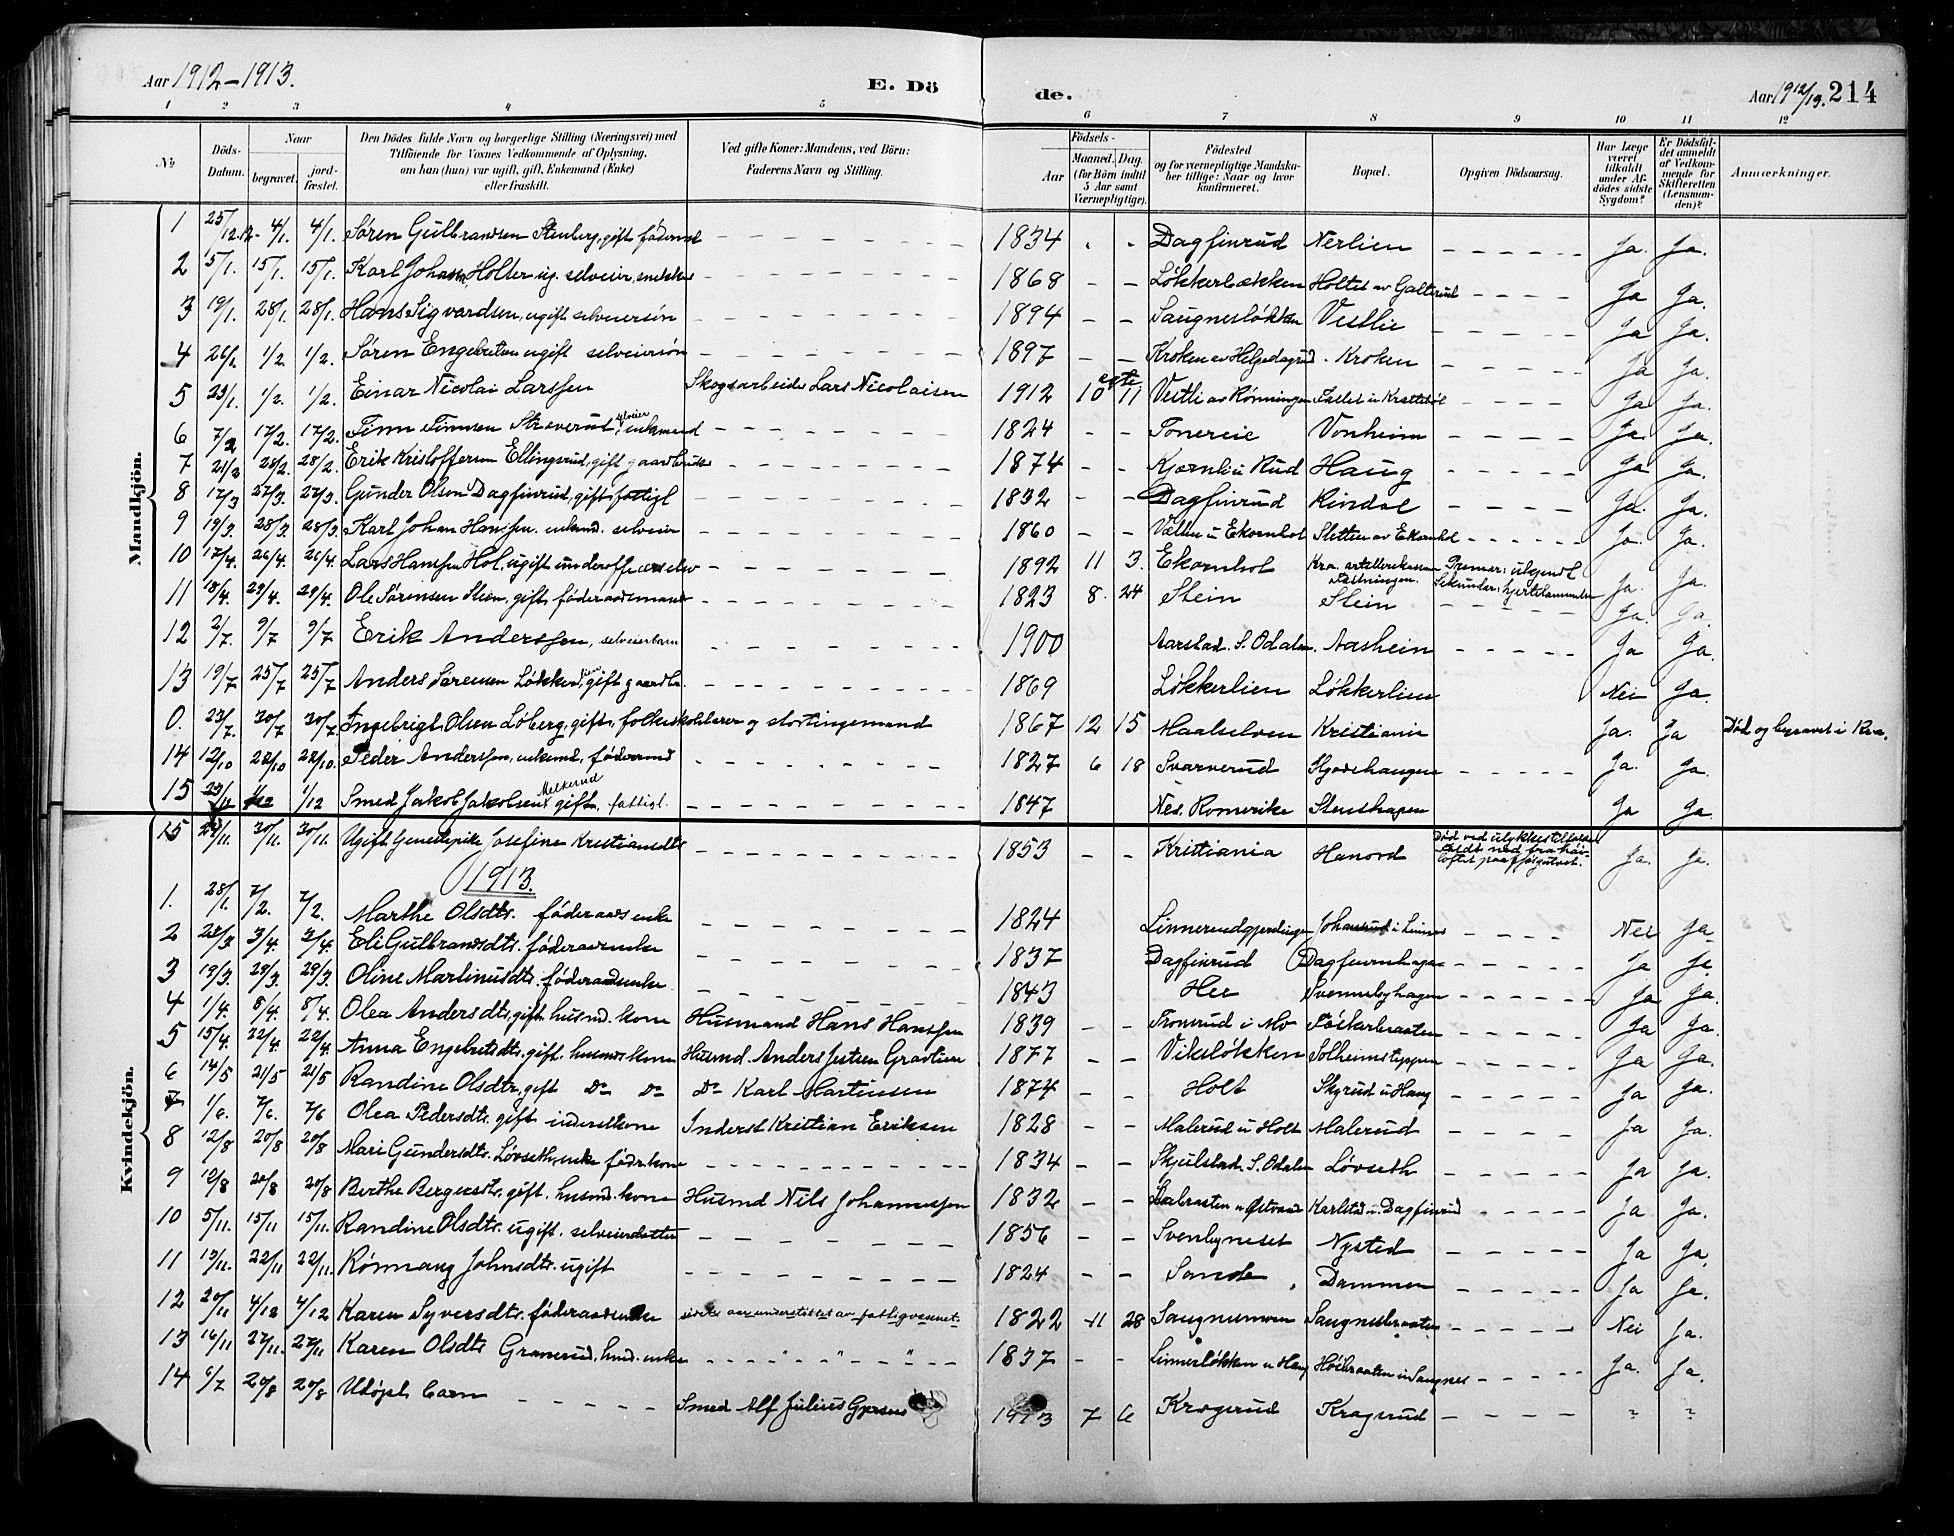 Aar 1912–1913. E. Dö de. Aar 1912/13. 214
1 2 3 4 5 6 7 8 9 10 11 12
№ Döds-Datum. Naar begravet. jord-fæstet. Den Dödes fulde Navn og borgerlige Stilling (Næringsvei) med Tilföiende for Voxnes Vedkommende af Oplysning, om han (hun) var ugift, gift, Enkemand (Enke) eller fraskilt. Ved gifte Koner: Mandens, ved Börn: Faderens Navn og Stilling. Födsels- Aar Maaned. Dag. (for Börn indtil 5 Aar samt Værnepligtige). Födested og for værnepligtige Mandska-ber tillige: Naar og hvor konfirmeret. Bopæl. Opgiven Dödsaarsag. Har Læge været tilkaldt under Af-dödes sidste Sygdom? Er Dödsfal-det anmeldt af Vedkom-mende for Skifteretten (Lensman-den)? Anmærkninger.
Mandkjön.
1 25/12.12 4/1. 4/1. Søren Gulbrandsen Stenberg, gift 1834 Dagfinrud Nerlien Ja. Ja.
2 5/1. 15/1. 15/1. Karl Johan Holter ug. selveier, snekker 1868 Løkkerbækken Holtet av Galterud Ja Ja.
3 19/1. 28/1. 28/1. Hans Sigvardsen, ugift selveiersøn 1894 Saugnesløkken Vestlie Ja Ja.
4 26/1 1/2. 1/2. Søren Engebretsen ugift selveiersøn 1897 Kroken av Helgedagrud Kroken Ja Ja.
5 29/1. 1/2. 1/2. Einar Nicolai Larssen Skogsarbeider Lars Nicolaisen 1912 10 egte 11 Vestli av Rønningen Ja Ja.
6 7/2 17/2. 17/2. Finn Finnsen selveier, enkemand 1824 Tonereie Vonheim Ja. Ja.
7 21/2 28/2. 28/2. Erik Kristoffersen Ellingsrud, gift gaardbruker 1874 Kjernli u Rud Haug Ja Ja.
8 17/3 27/3. 27/3. Gunder Olsen Dagfinrud, gift, fattigl 1832 Dagfinrud Rindal Ja. Ja.
9 19/3. 28/3. 28/3. Karl Johan Hanssen. enkmd. selveier 1860 u Ekornhol Sletten av Ekornhol Ja. Ja.
10 17/4. 26/4. 26/4. Lars Hanssen Hol, ugift underofficerselev 1892 11 3. Ekornhol Kra. Fæstningen. Primær: ukjendt Sekundær: hjertelammelse Ja. Ja.
11 18/4. 29/4. 29/4. Ole Sørensen Steen, gift, føderaadsmand 1823 8. 24 Stein Stein Ja. Ja.
12 2/7. 9/7 9/7 Erik Anderssen, selveierbarn 1900 Aarstad. S. Odalen. Aasheim Ja Ja.
13 19/7 25/7 25/7 Anders Sørensen Løkkerlien, gift gaardbr. 1869 Løkkerlien Løkkerlien Nei Ja.
0. 23/7. 30/7. 30/7. Ingebrigt Olsen Løberg, gift, folkeskolelærer og stortingsmand 1867 12 15 Maalselven Kristiania Ja. Ja Død og begravet i Kra.
14 12/10 22/10 22/10. Peder Anderssen, enkemd, 1827 6 18 Svarverud Ja. Ja.
15 23/11 1/12 1/12 Smed Jakob Jakobsen Melkerud gift, fattigl. 1847 Nes. Romerike Stenshagen Ja Ja.
Kvindekjön.
15 24/11. 30/11. 30/11. Ugift tjenestepike Josefine Kristiansdtr 1853 Kristiania Hanord Død ved ulykkestilfælde. Faldt ned fra høi-loftet paa Ja. Ja.
1913.
1. 28/1. 7/2. 7/2. Marthe Olsdtr. føderaads enke 1824 Johansrud i Linnes Nei Ja.
2 28/3. 3/4. 3/4. Eli Gulbrandsdtr. føderaadsenke 1837 Dagfinrud Dagfinrudhagen Ja Ja
3 19/3. 29/3. 29/3. Oline Martinusdtr. føderaadsenke 1843 Her Svennebyhagen Ja Ja.
4 1/4. 8/4. 8/4. Olea Andersdtr, gift husmd. kone Husmand Hans Hanssen 1839 Tronrud i Mo Ja Ja.
5 15/4. 22/4. 22/4. Anna Engebretsdtr, gift. husmds kone Husmd. Anders Justsen Gravlien 1877 Viksløkken Solheimsteppen Ja Ja.
6 14/5 21/5 21/5 Randine Olsdtr, gift Do Do Do Karl Martinsen 1874 Holt Skyrud u Haug Ja Ja.
7 1/6. 7/6. 7/6 Olea Pedersdtr. gift inderstkone Inderst Kristian Eriksen 1828 Malerud u Holt Malerud Ja Ja.
8 12/8 20/8 20/8 Mari Gundersdtr. Løvseth, enke 1834 Skjulstad. S. Odalen Løvseth Ja Ja.
9 12/8 20/8 20/8 Berthe Bergersdtr, gift. husmd. kone Husmd Nils Johannessen 1832 Karlstad u. Dagfinrud Ja Ja.
10 5/11. 15/11 15/11. Randine Olsdtr. ugift. selveierdatter 1856 Svenbyneset Nysted Ja Ja.
11 13/11. 22/11 22/11. Rønnaug Johnsdtr. ugift 1824 Sande Dammen Ja Ja.
12 20/11 4/12 4/12 Karen Syversdtr. føderaadsenke siste aar understøttet av fattigvesenet. 1822 11 28 Saugnesmoen Saugnesbraaten Nei Ja.
13 16/11 27/11. 27/11 Karen Olsdtr Granerud, husmd. enke 1837 Linnerløkken u Haug Høibraaten u Saugnes Ja. Ja.
14 6/7 20/8 20/8. Udøpt barn Smed Alf Julius 1913 7 6 Kragerud Kragerud ? ?